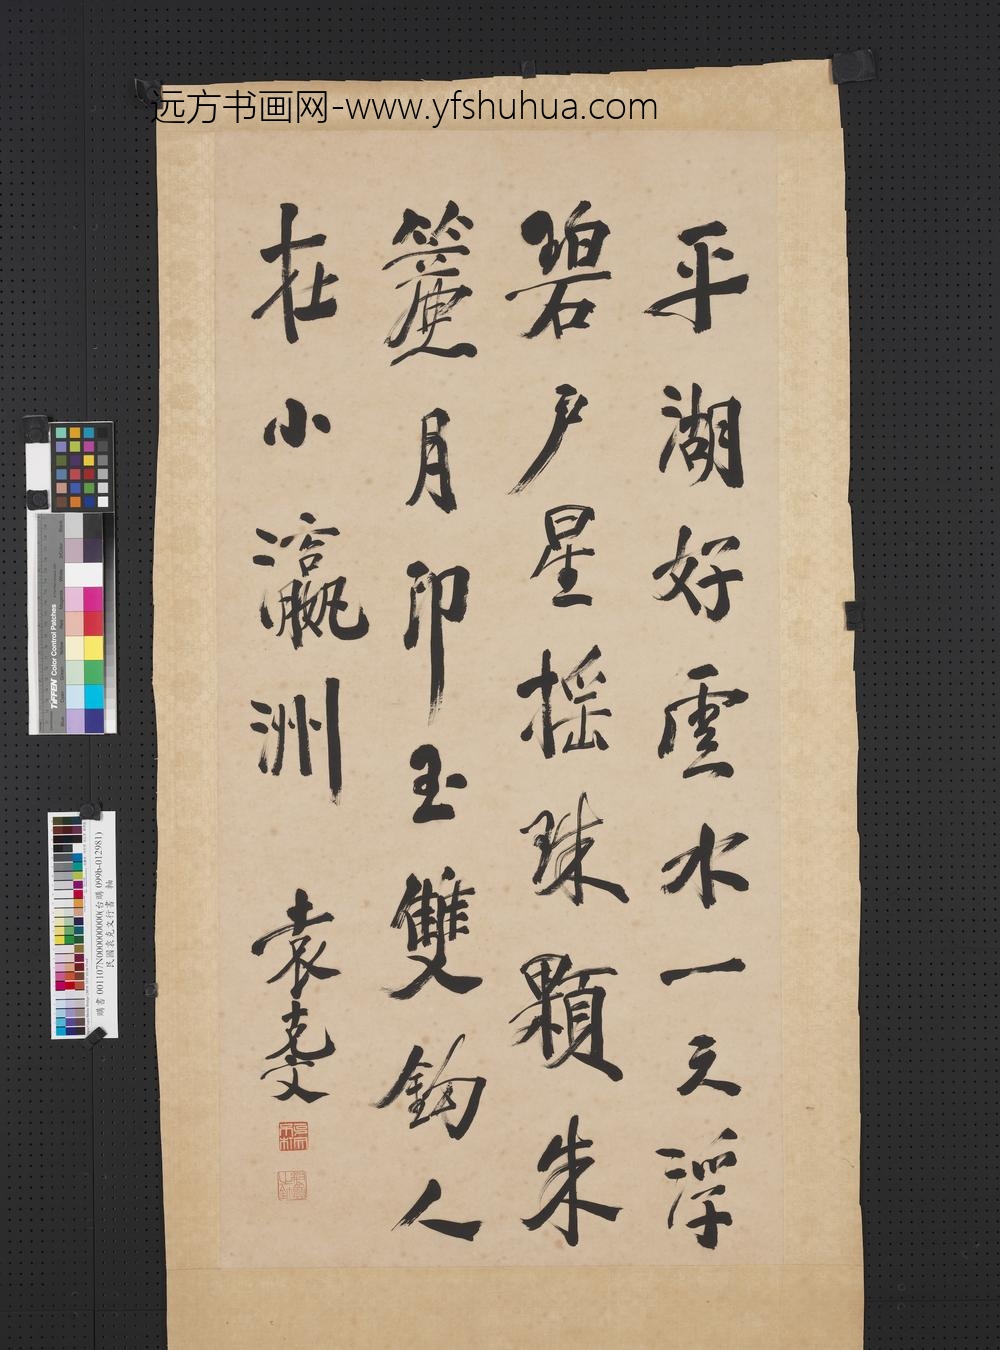 远方书画网-www.yfshuhua.com
平湖好雲水一天浮
碧户星摇珠顆朱
簾月印玉雙鉤人
在小瀛洲
袁克文
TIFFEN Color Control Patches
購書 001107N000000000(台購 099b-012981)
民國袁克文行書 軸